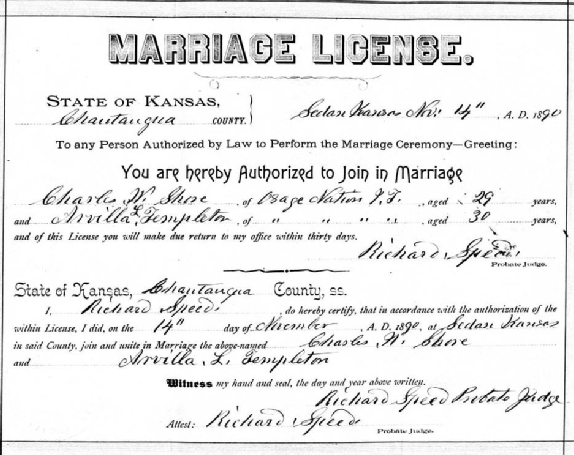 MARRIAGE LICENSE.
STATE OF KANSAS,
Chautauqua COUNTY. Sedan Kansas Nov. 14" A. D. 1890
To any Person Authorized by Law to Perform the Marriage Ceremony—Greeting:
You are hereby Authorized to Join in Marriage
Charles W. Shore of Osage Nation I.T. aged 29 years,
and Arvilla L. Templeton of " " " " aged 30 years,
and of this License you will make due return to my office within thirty days.
Richard Speed
Probate Judge.
State of Kansas, Chautauqua County, ss.
I, Richard Speed, do hereby certify, that in accordance with the authorization of the
within License, I did, on the 14" day of November A. D. 1890, at Sedan Kansas
in said County, join and unite in Marriage the above-named Charles W. Shore
and Arvilla L. Templeton
Witness my hand and seal, the day and year above written.
Richard Speed Probate Judge
Attest: Richard Speed
Probate Judge.